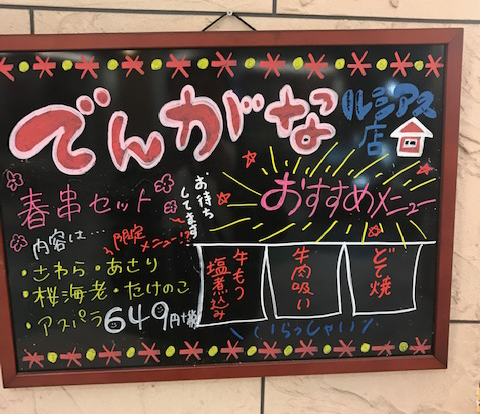 でんがな
ルシアス
店
春串セット
お待ち
してます
おすすめメニュー
内容は…
限定
メニュー!!
・さわら・あさり
・桜海老・たけのこ
・アスパラ 649円+税
牛もつ
塩煮込み
牛肉吸い
どて焼
いらっしゃい